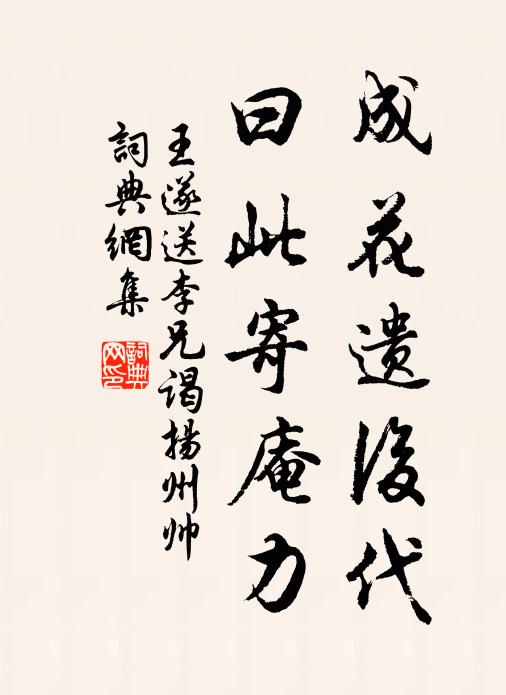 成花遗后代
曰此寄庵力
王遂送李兄谒揚州帅
詞典網集
詞典网印